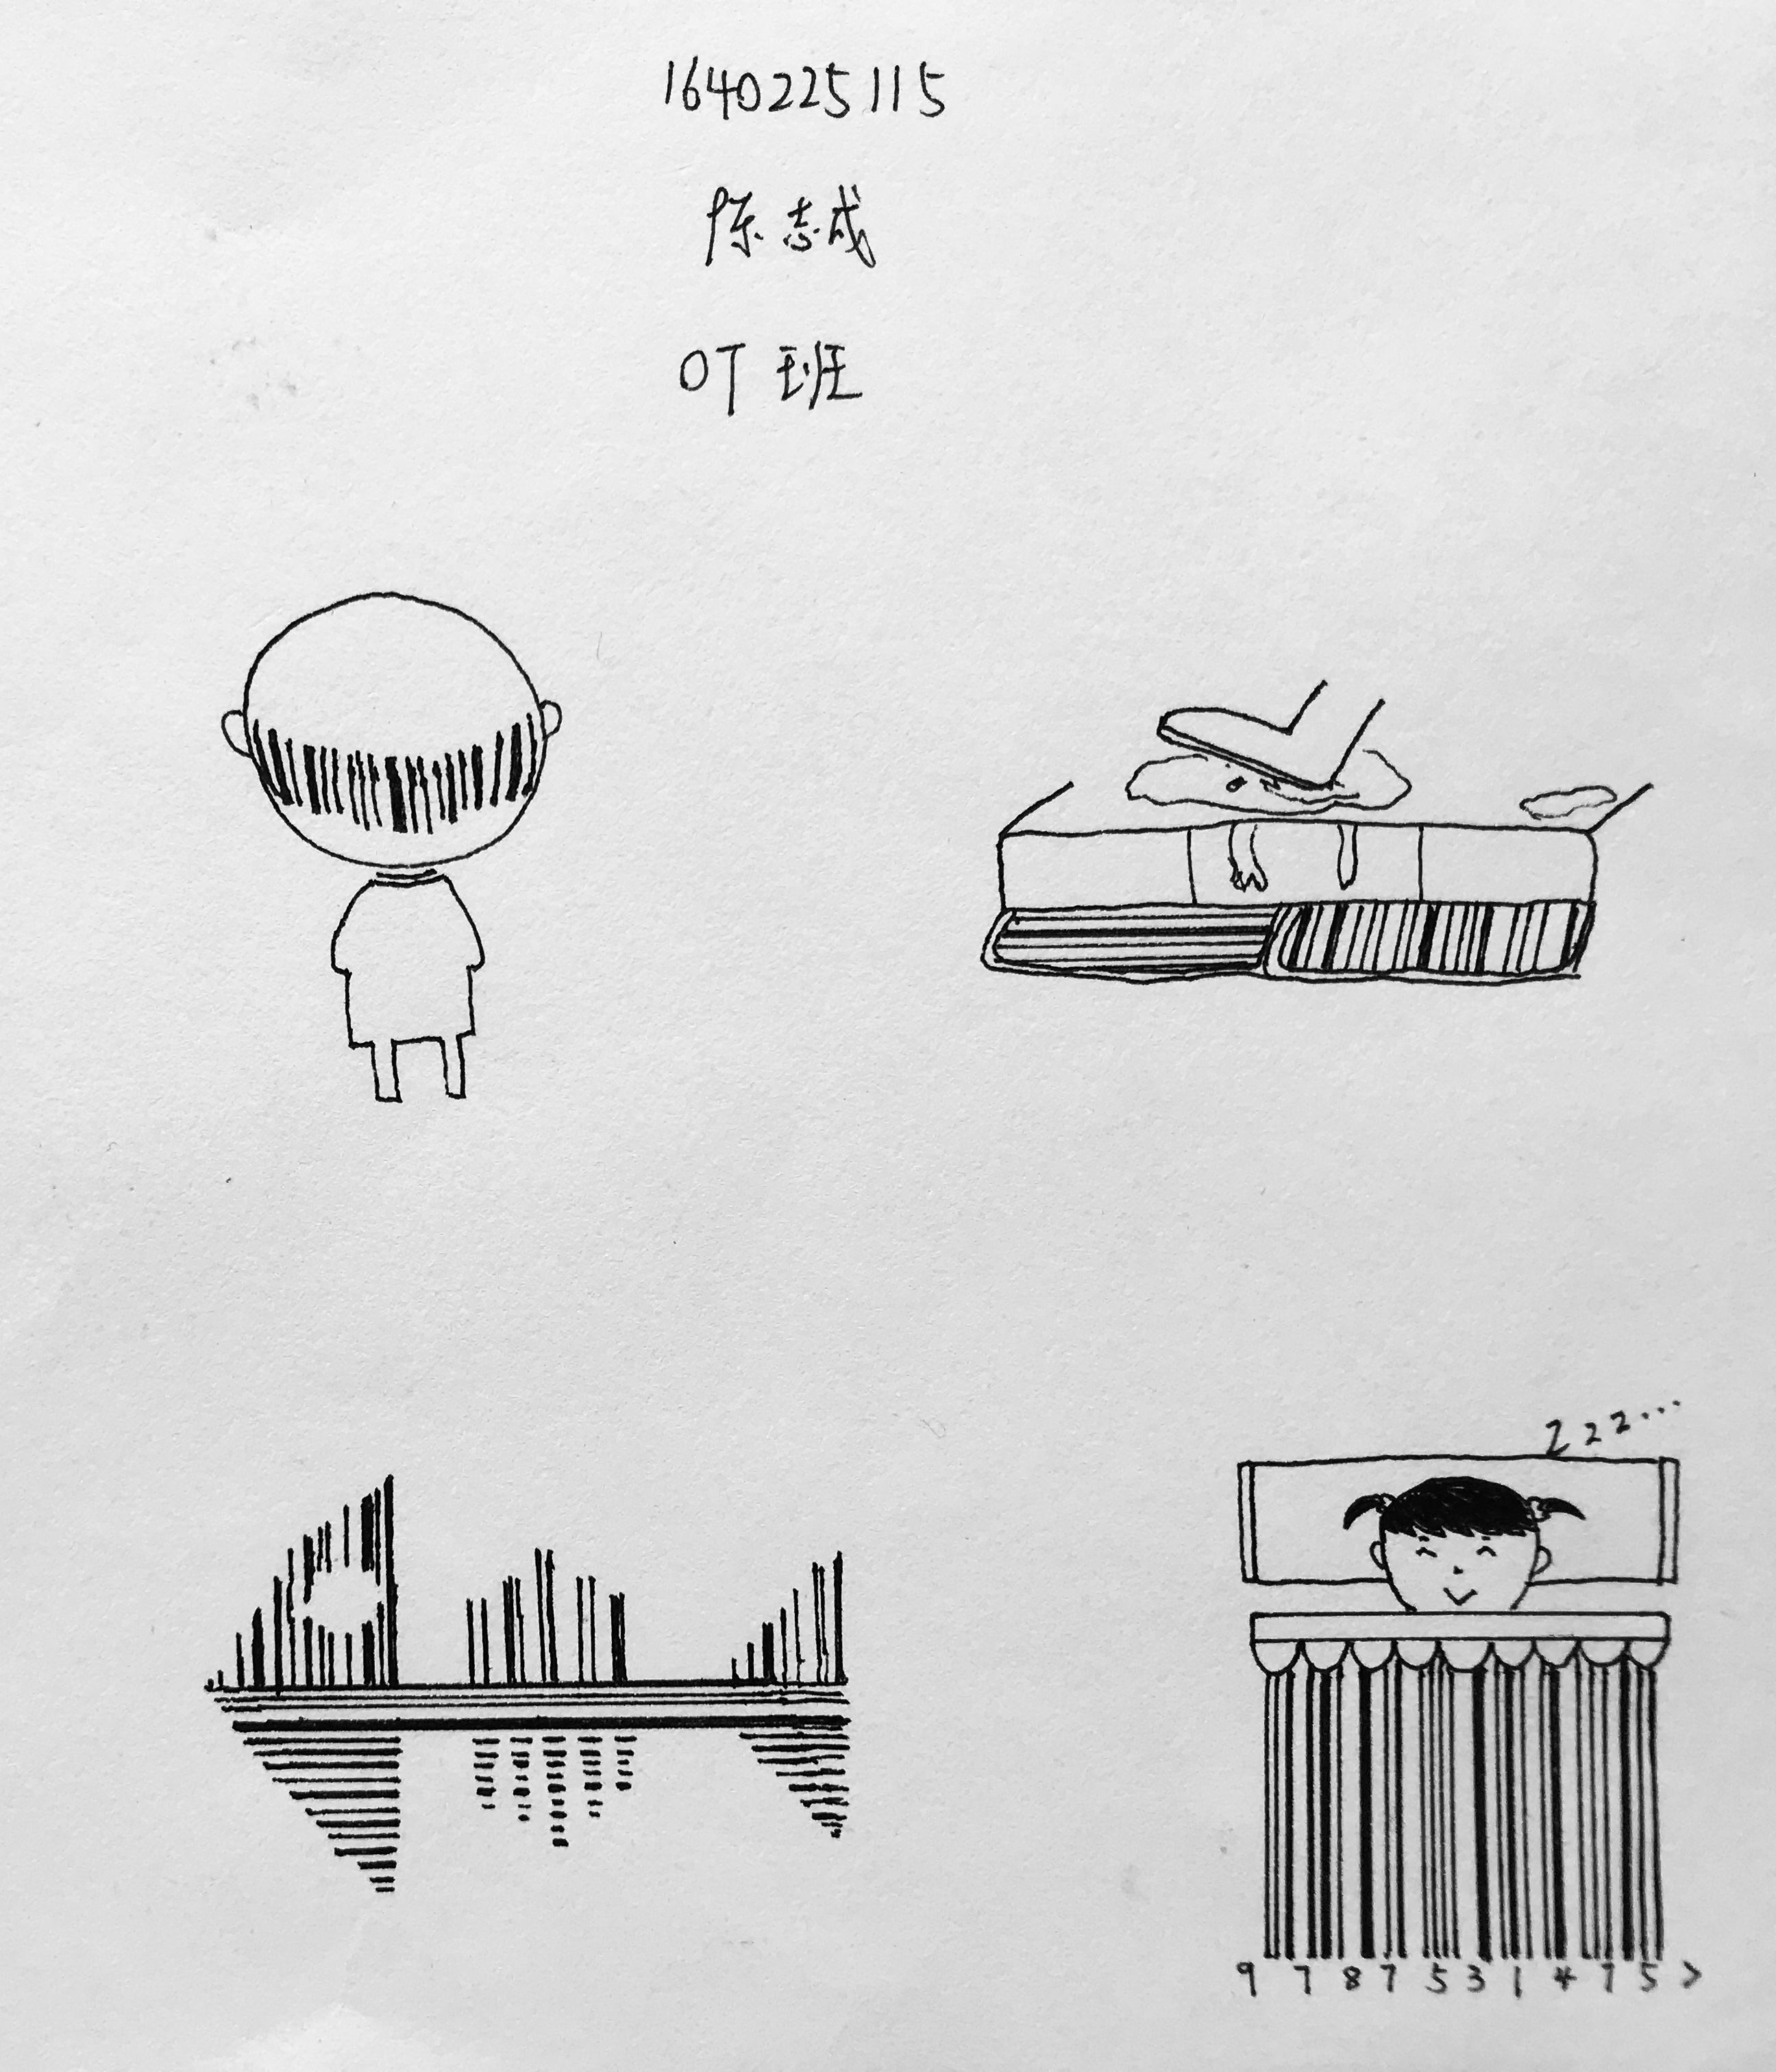 1640225115
陈志成
07班
Zzz...
9 7 8 7 5 3 1 4 7 5 >